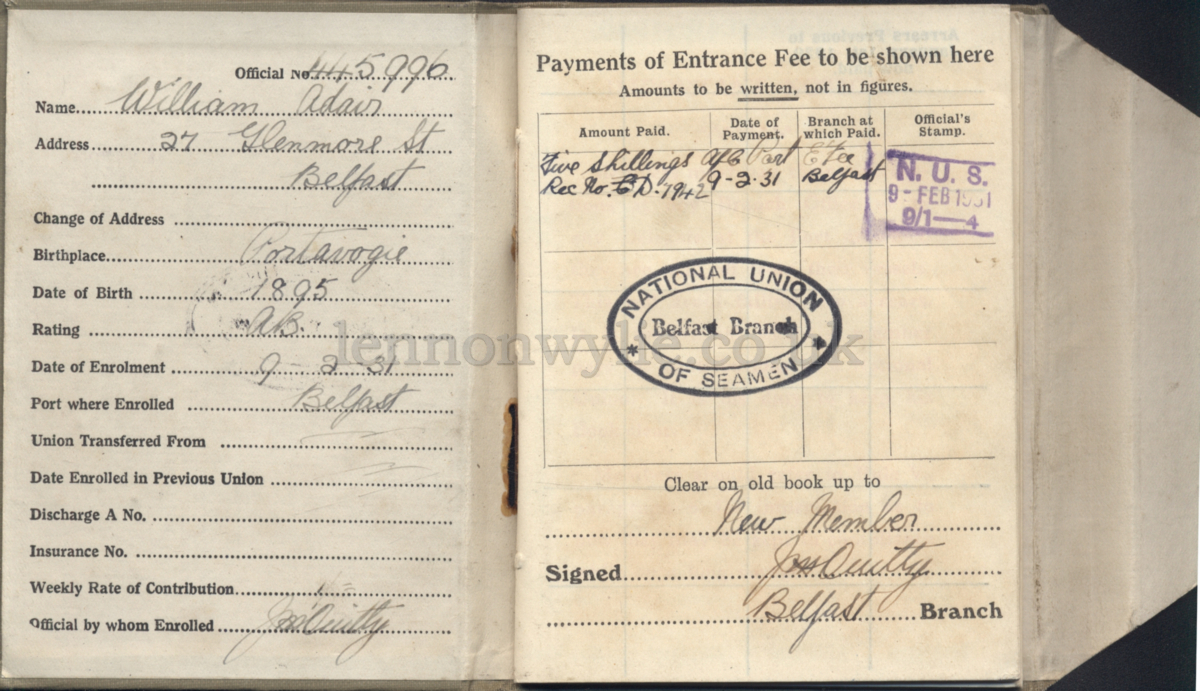 Official No. 445996
Name William Adair
Address 27 Glenmore St
Belfast
Change of Address
Birthplace Portavogie
Date of Birth 1895
Rating A.B.
Date of Enrolment 9-2-31
Port where Enrolled Belfast
Union Transferred From
Date Enrolled in Previous Union
Discharge A No.
Insurance No.
Weekly Rate of Contribution 1/=
Official by whom Enrolled
Payments of Entrance Fee to be shown here
Amounts to be written, not in figures.
Amount Paid. Date of Payment. Branch at which Paid. Official's Stamp.
Five Shillings a/c Part E Fee
Rec No. 7942 9-2-31 Belfast
N. U. S.
9-FEB 1931
9/1—4
NATIONAL UNION
Belfast Branch
OF SEAMEN
lennonwylie.co.uk
Clear on old book up to
New Member
Signed
Belfast Branch